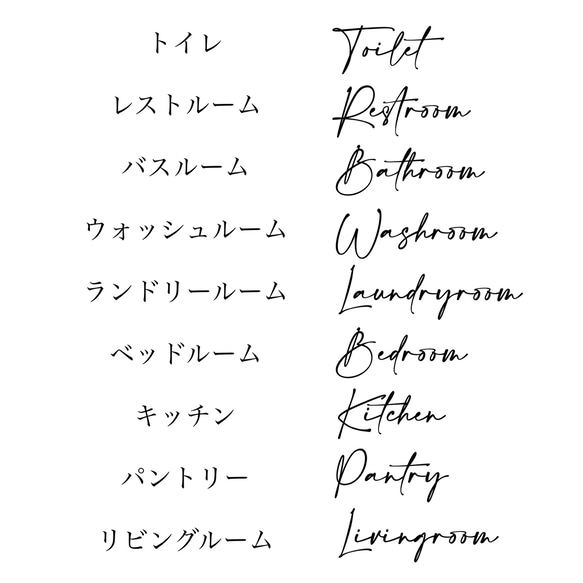 トイレ Toilet
レストルーム Restroom
バスルーム Bathroom
ウォッシュルーム Washroom
ランドリールーム Laundryroom
ベッドルーム Bedroom
キッチン Kitchen
パントリー Pantry
リビングルーム Livingroom